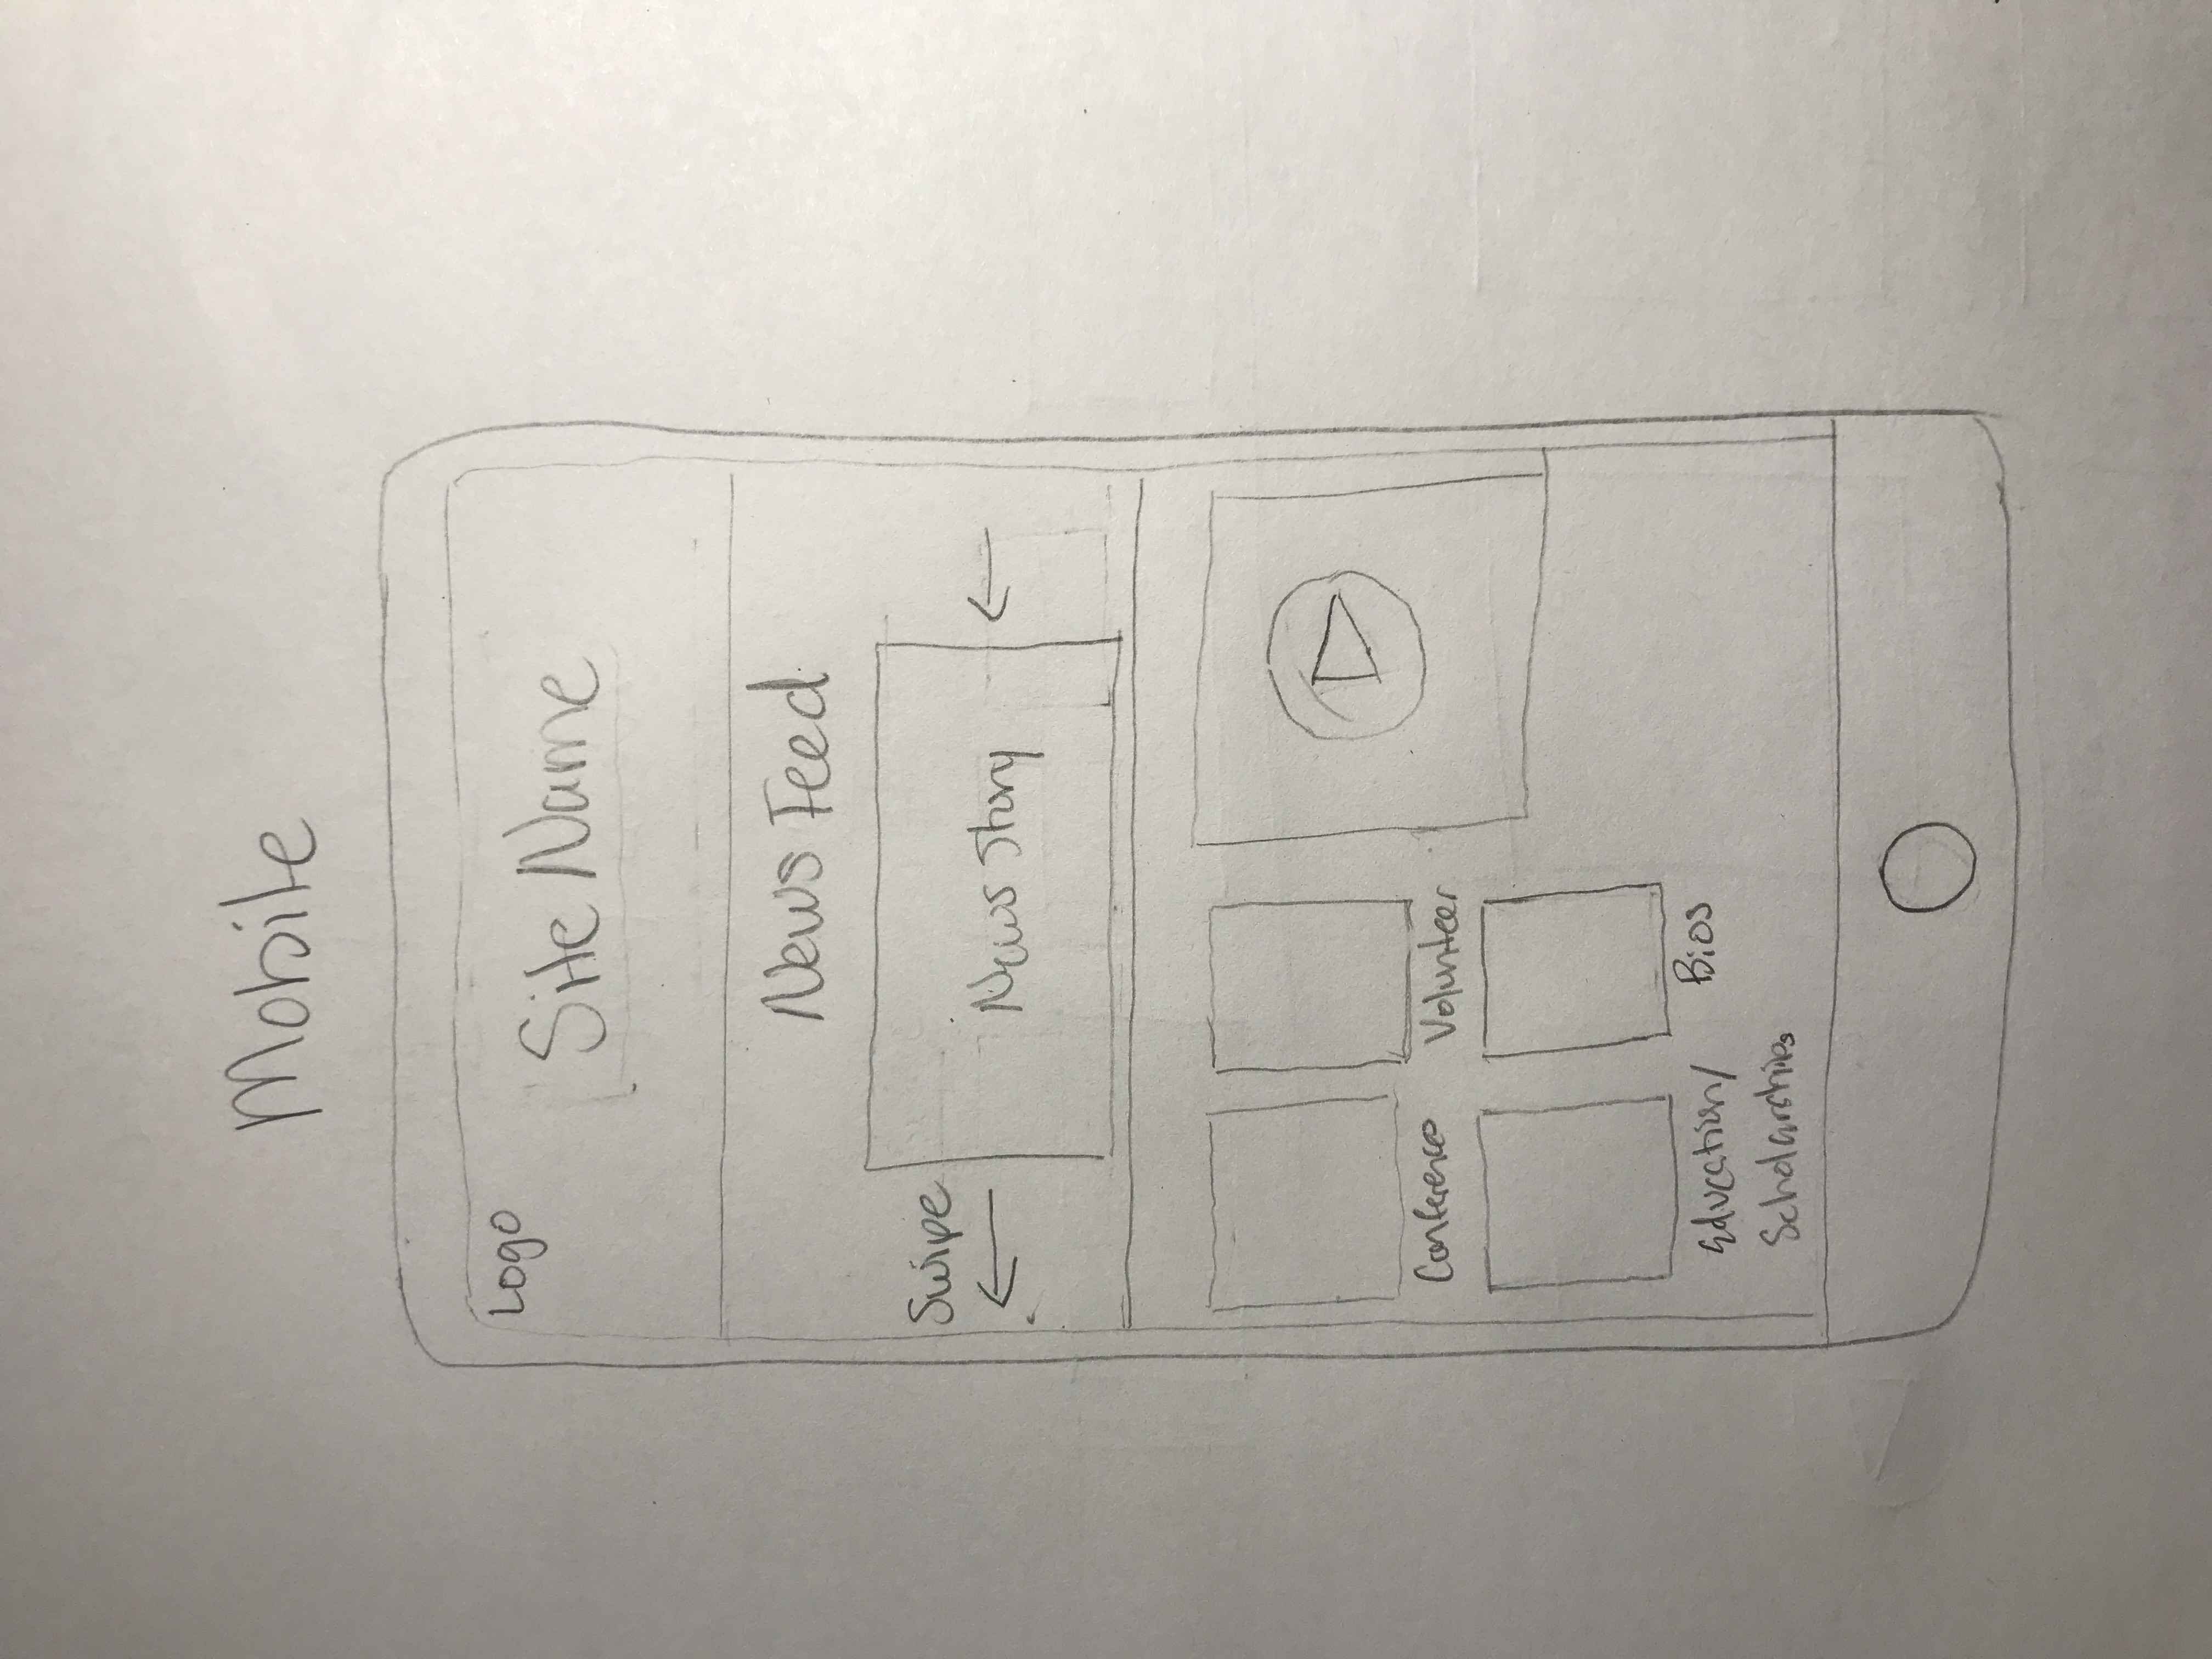 Mobile
Logo
Site Name
News Feed
Swipe
News Story
Conferences
Volunteer
Education/
Scholarships
Bios